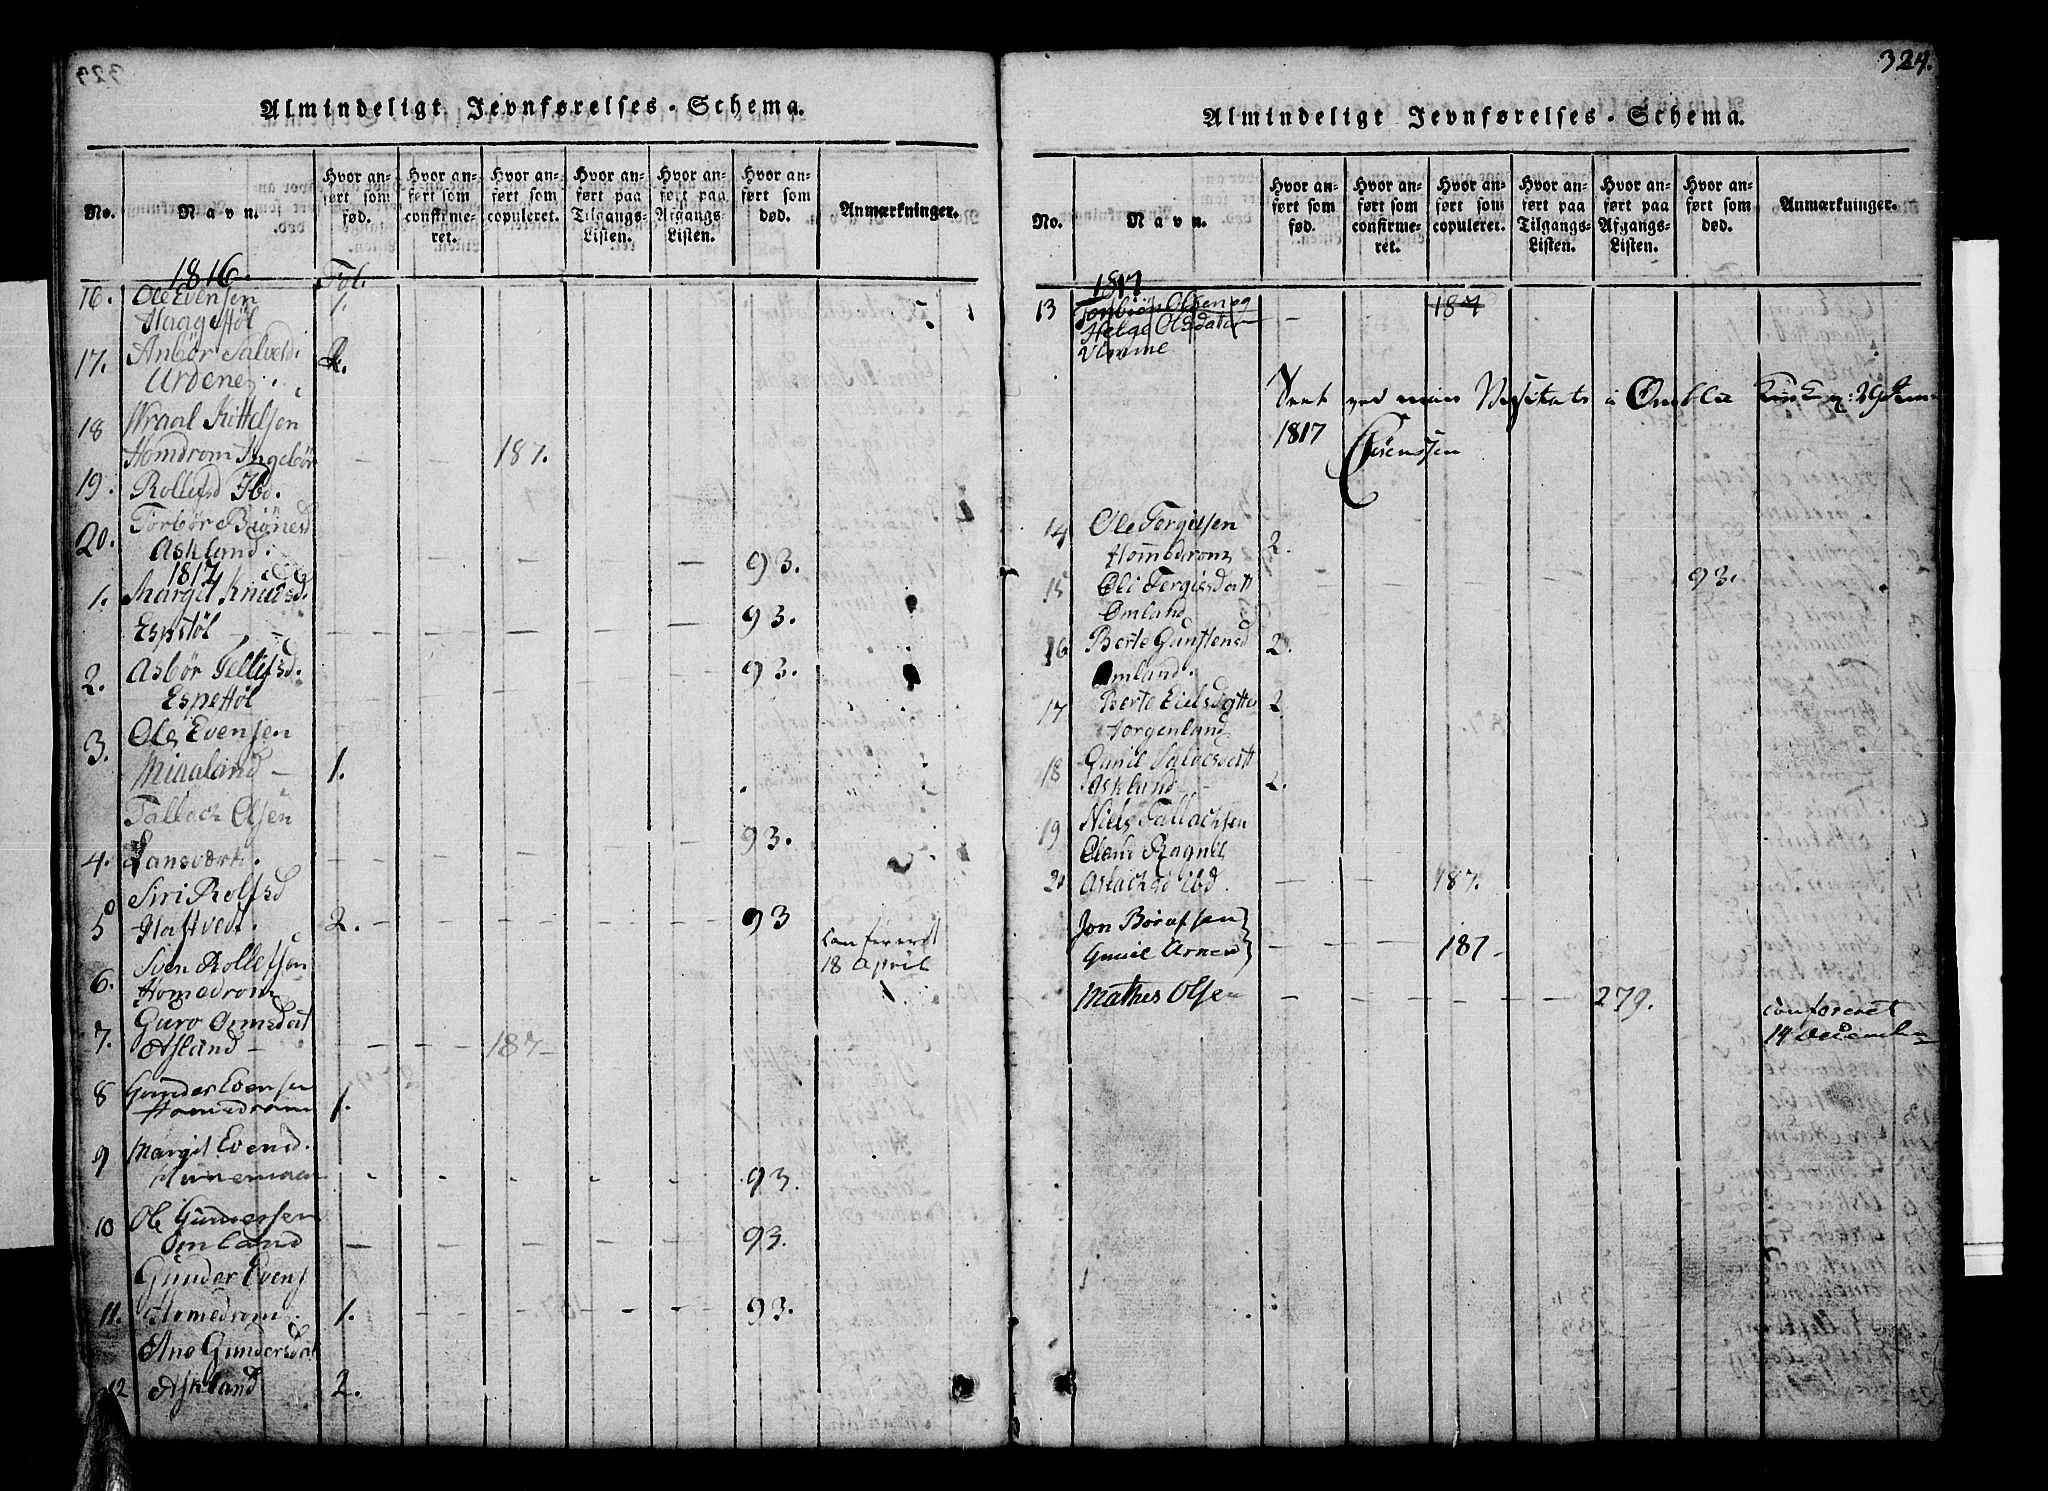 Almindeligt Jevnførelses-Schema.
No.
Navn.
Hvor an-
ført som
fød.
Hvor an-
ført som
confirme-
ret.
Hvor an-
ført som
copuleret.
Hvor an-
ført paa
Tilgangs-
Listen.
Hvor an-
ført paa
Afgangs-
Listen.
Hvor an-
ført som
død.
Anmærkninger.
1816. Fol.
16. Ole Evensen
Haagestøl 1.
17. Anbør Salvesd.
Urdenes. 2.
18 Wraal Kittelsen
Homdrom Ingebør – – 187.
19. Rollefsd Ibd.
20. Torbør Biønesd
Askland. – – – – – 93.
1817
1. Margit Knudsd.
Espstøl – – – – – 93.
2. Asbør Tellefsd.
Espestøl – – – – – 93.
3. Ole Evensen
Miaaland – 1.
Tallach Olsen
4. Lansværk. – – – – – 93.
Siri Rolfsd
5 Haftved. 2. – – – – 93
Sven Rollefsen confereret
6. Homedrom 18 April
7. Guro Ormsdat
Asland – – – 187 –
8 Gunder Evensen
Homedrom 1.
9 Margit Evensd.
– – – – – 93.
10 Ole Gundersen
Omland – – – – – 93.
Gunder Evens
11. Homedrom. 1. – – – – 93.
Ane Gundersdat
12 Askland 2.
324.
Almindeligt Jevnførelses-Schema.
No.
Navn.
Hvor an-
ført som
fød.
Hvor an-
ført som
confirme-
ret.
Hvor an-
ført som
copuleret.
Hvor an-
ført paa
Tilgangs-
Listen.
Hvor an-
ført paa
Afgangs-
Listen.
Hvor an-
ført som
død.
Anmærkninger.
1817
13 Tonbiøn Olsen og – 187
Helge Olsdatter
Vimme
Seet ved min Visitats i Omblie Kirke
1817 Sørenssen
14 Ole Tergisen
Hommedrom 2.
15 Oli Tergisdatt – – – – – 93.
Omland
16 Berte Gunstensd 2.
Omland.
17 Berte Eielsdatter 2.
Horgenland
18 Gunil Salvesdatt
Askland – 2.
19 Niels Tallachsen
Oland Ragnil
20 Aslachsd ibd. – – 187.
Jon Boralsen
Gunil Arnesd – – 187 –
Mathis Olsen – – – – 279.
confereret
14 Decemb